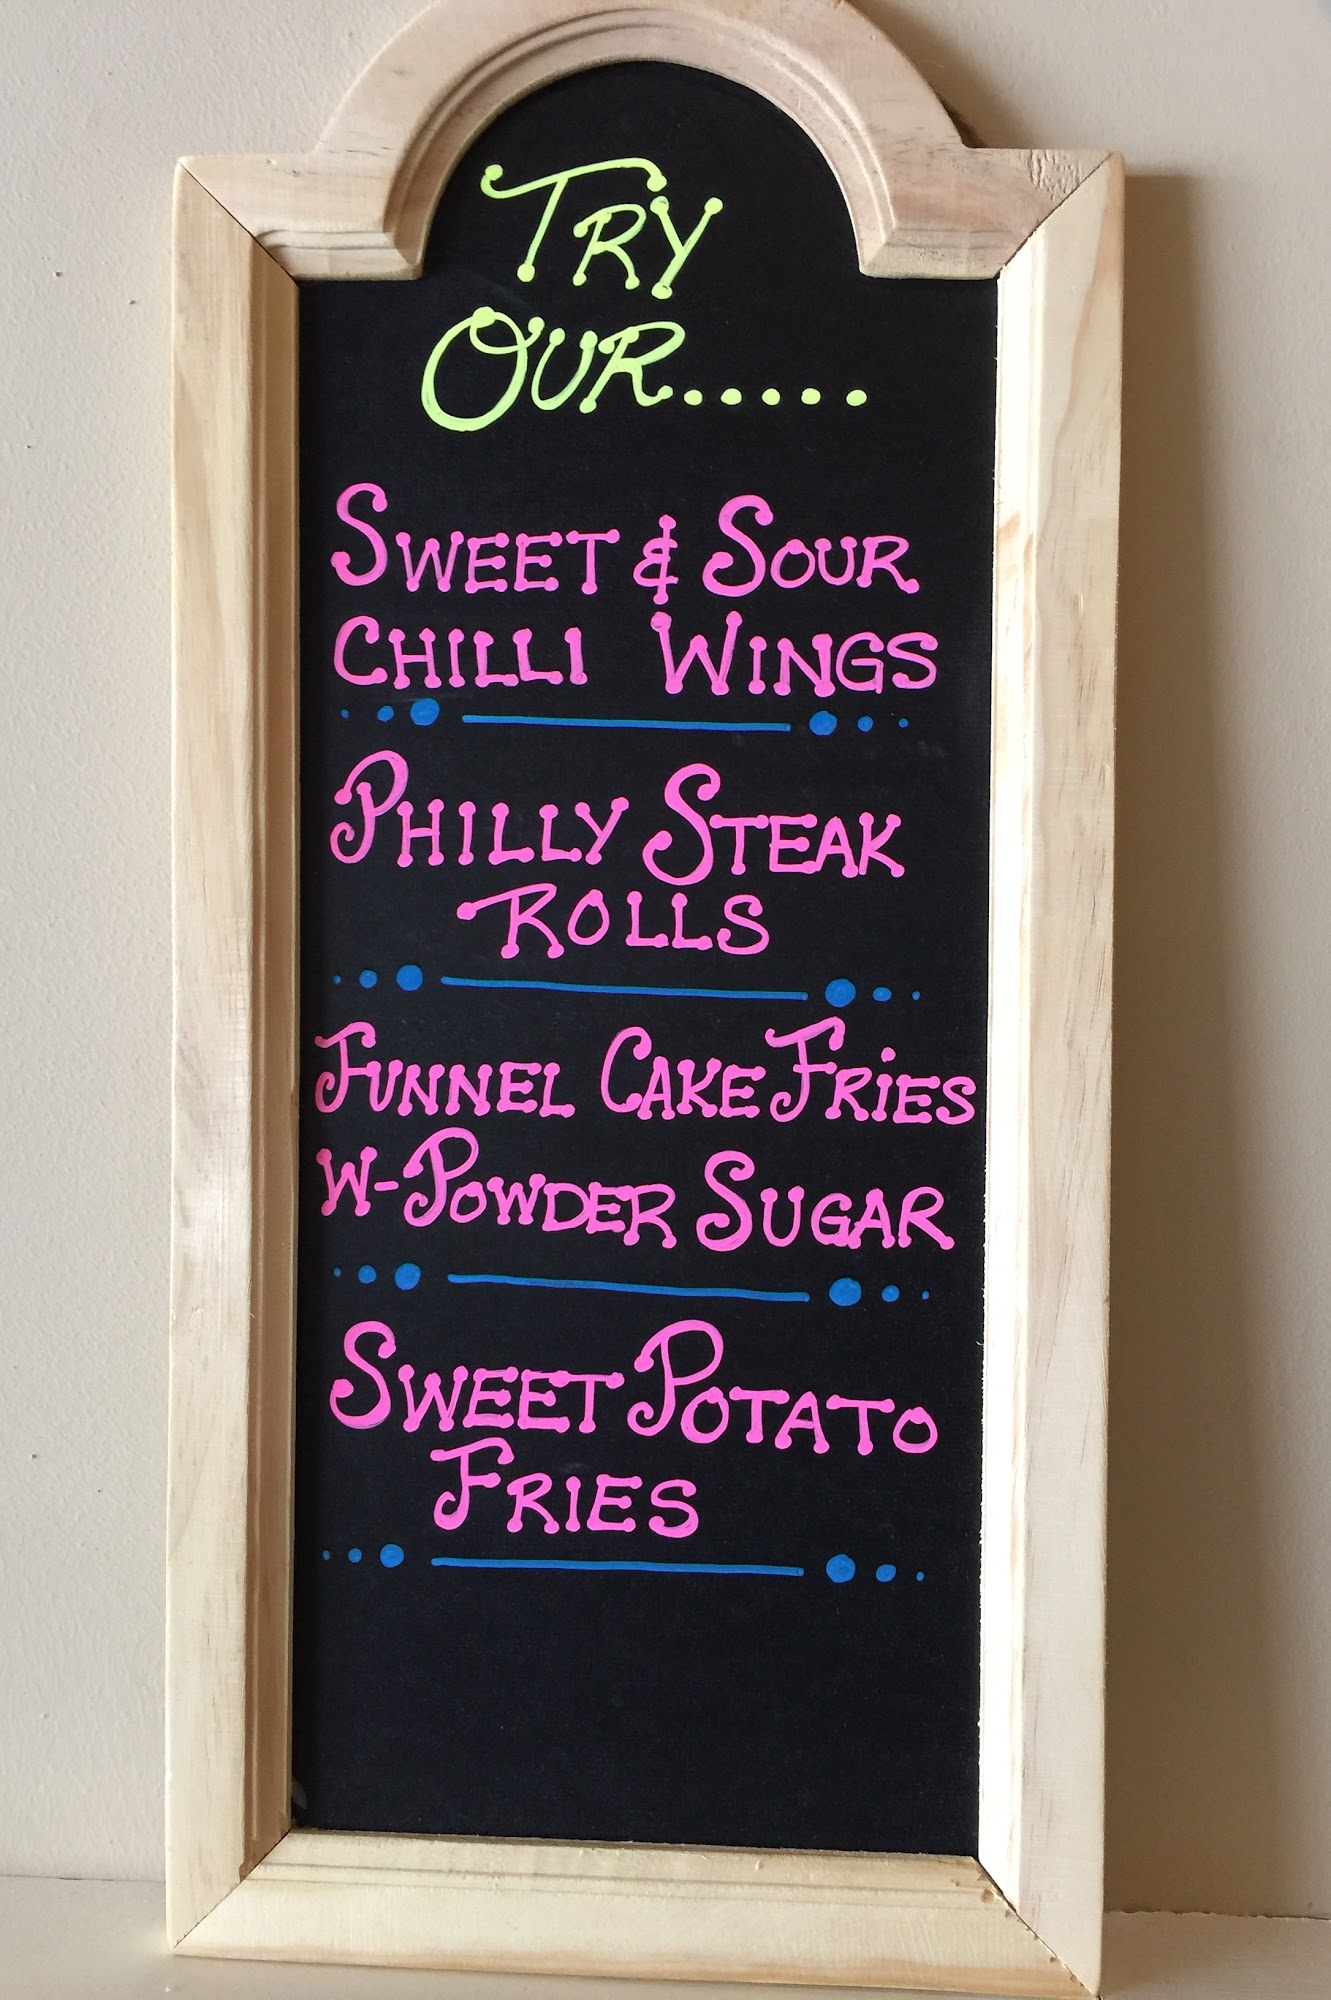 TRY
OUR.....
SWEET & SOUR
CHILLI WINGS
PHILLY STEAK
ROLLS
FUNNEL CAKE FRIES
W-POWDER SUGAR
SWEET POTATO
FRIES